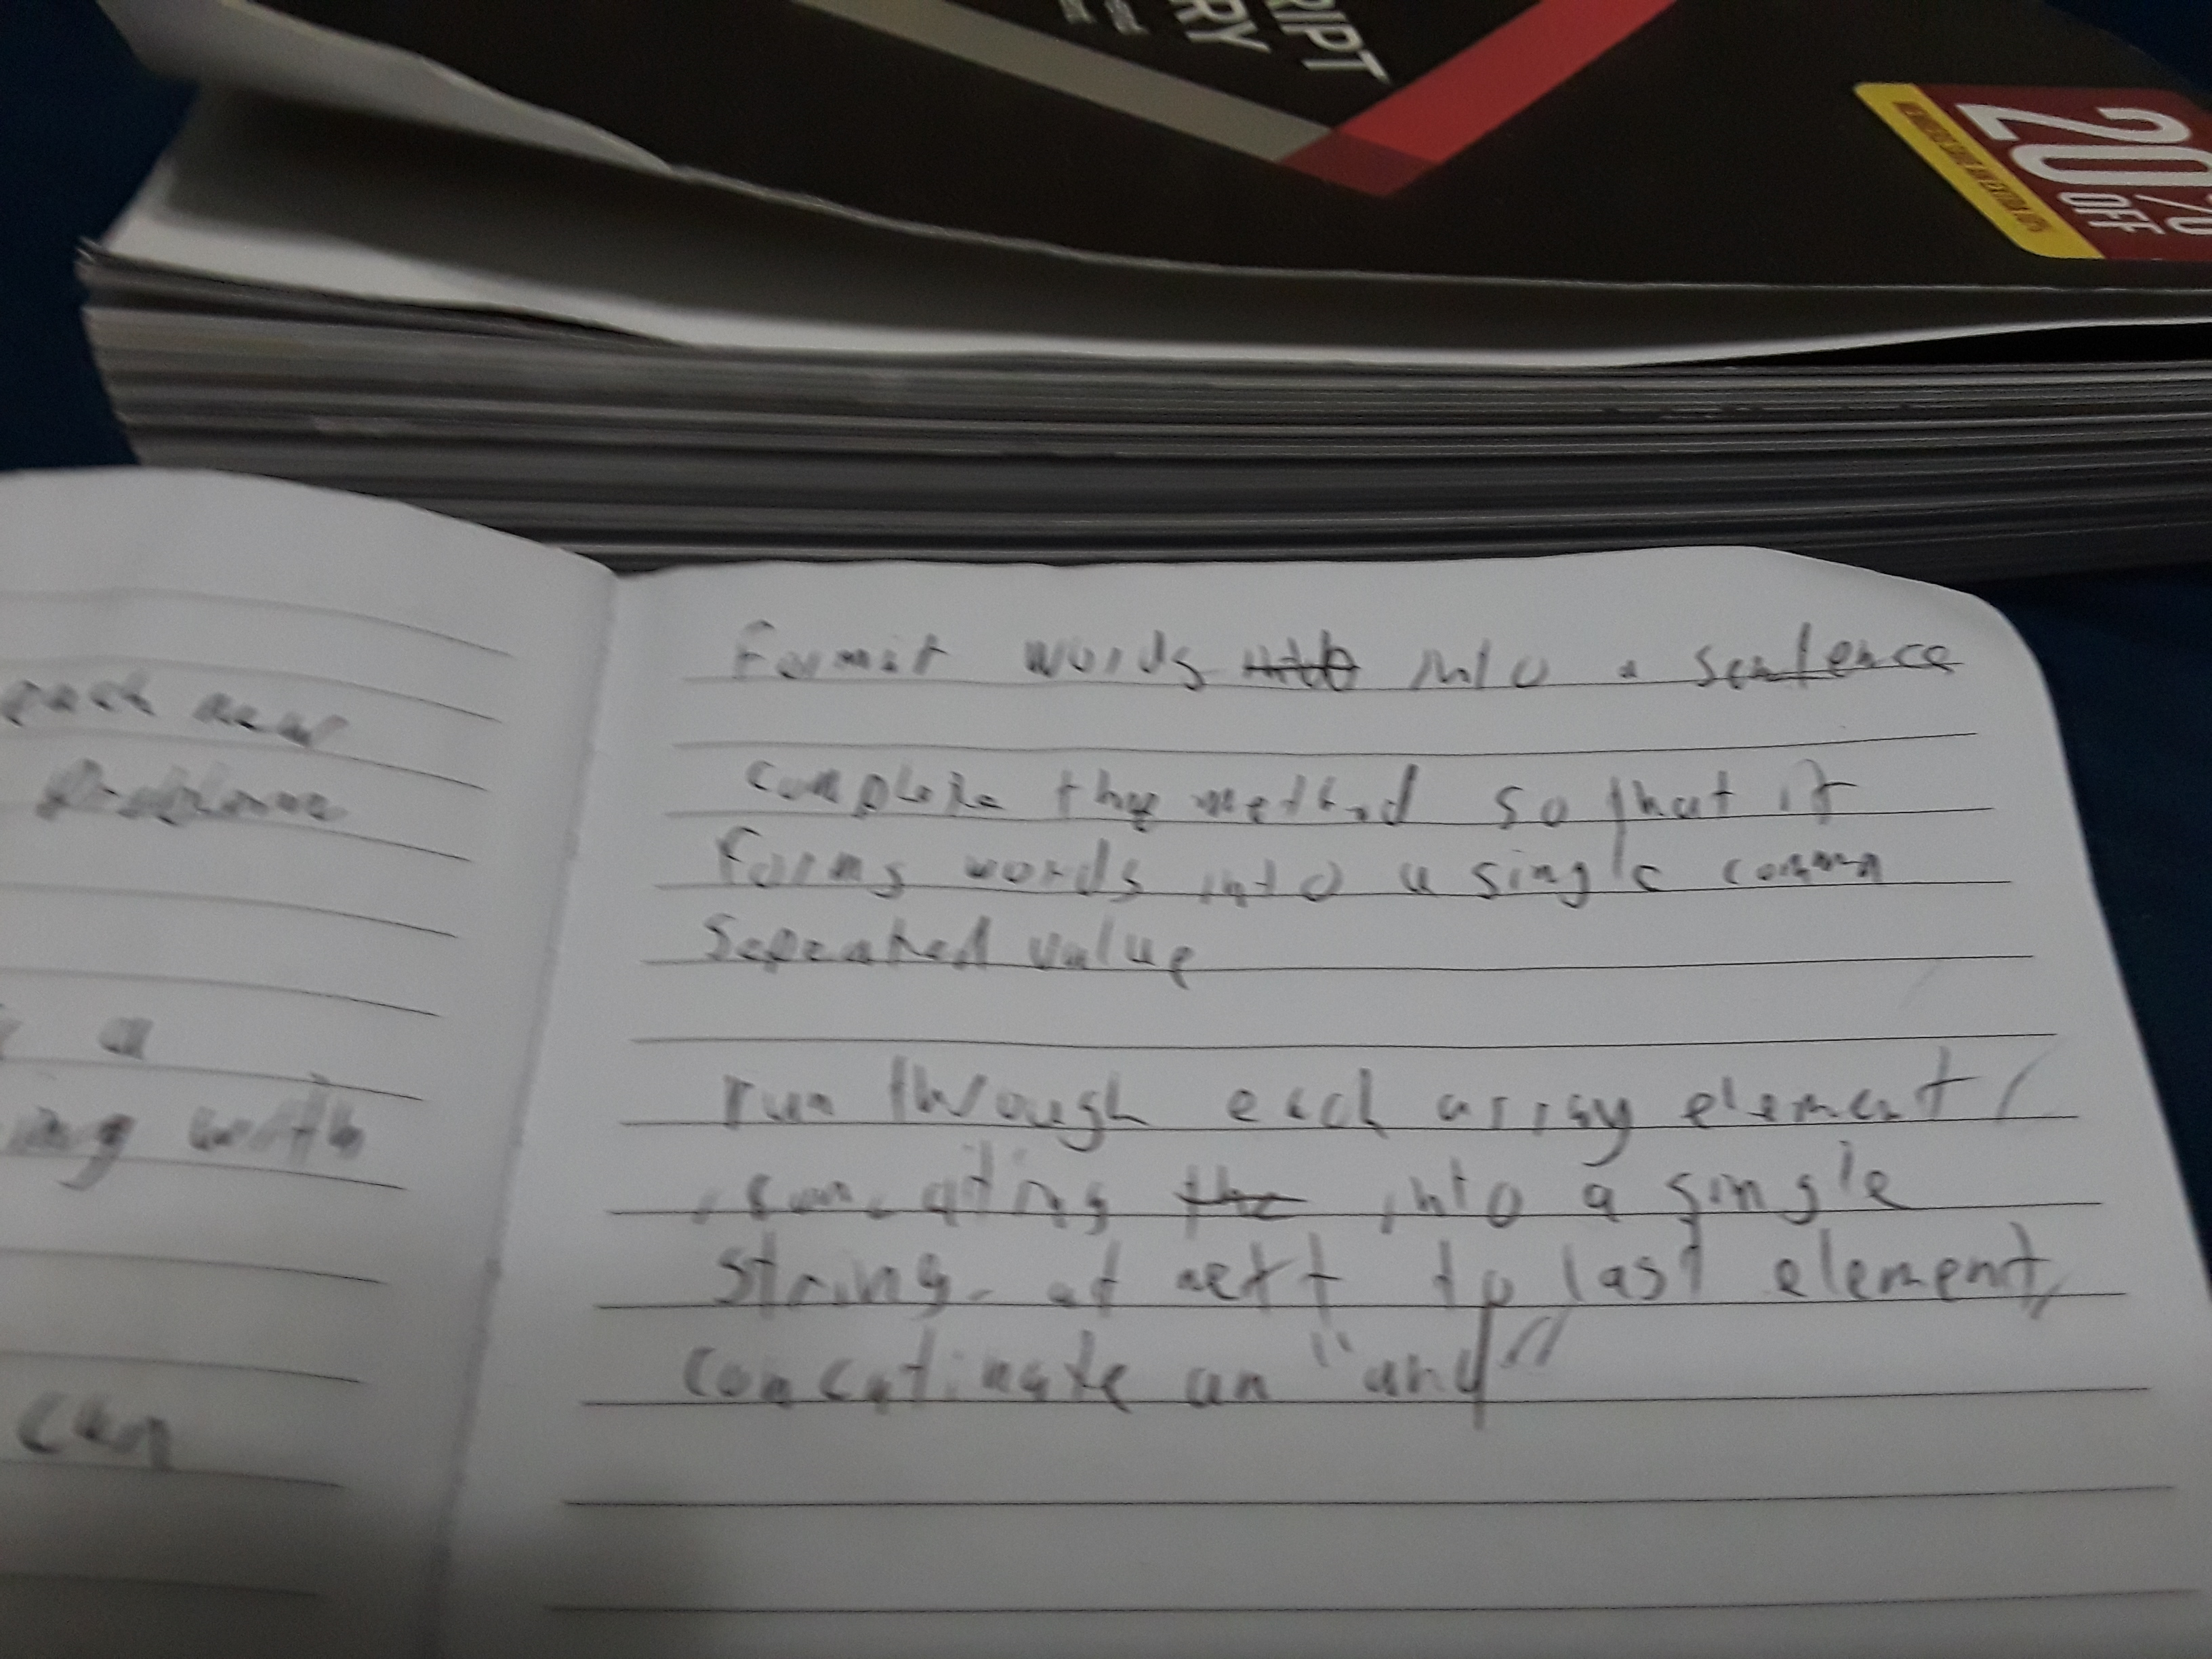 RIPT
RY
20%
OFF
each new
problem
a
ing with
can
Format words into a sentence
complete the method so that it
forms words into a single comma
seperated value
run through each array element
into a single
string. at next to last element,
concatinate an "and"